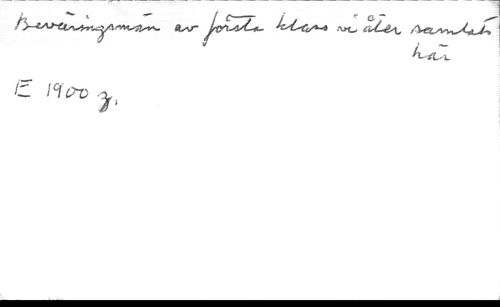 Beväringsmän av första klass vi åter samlats
här
E 1900 z.